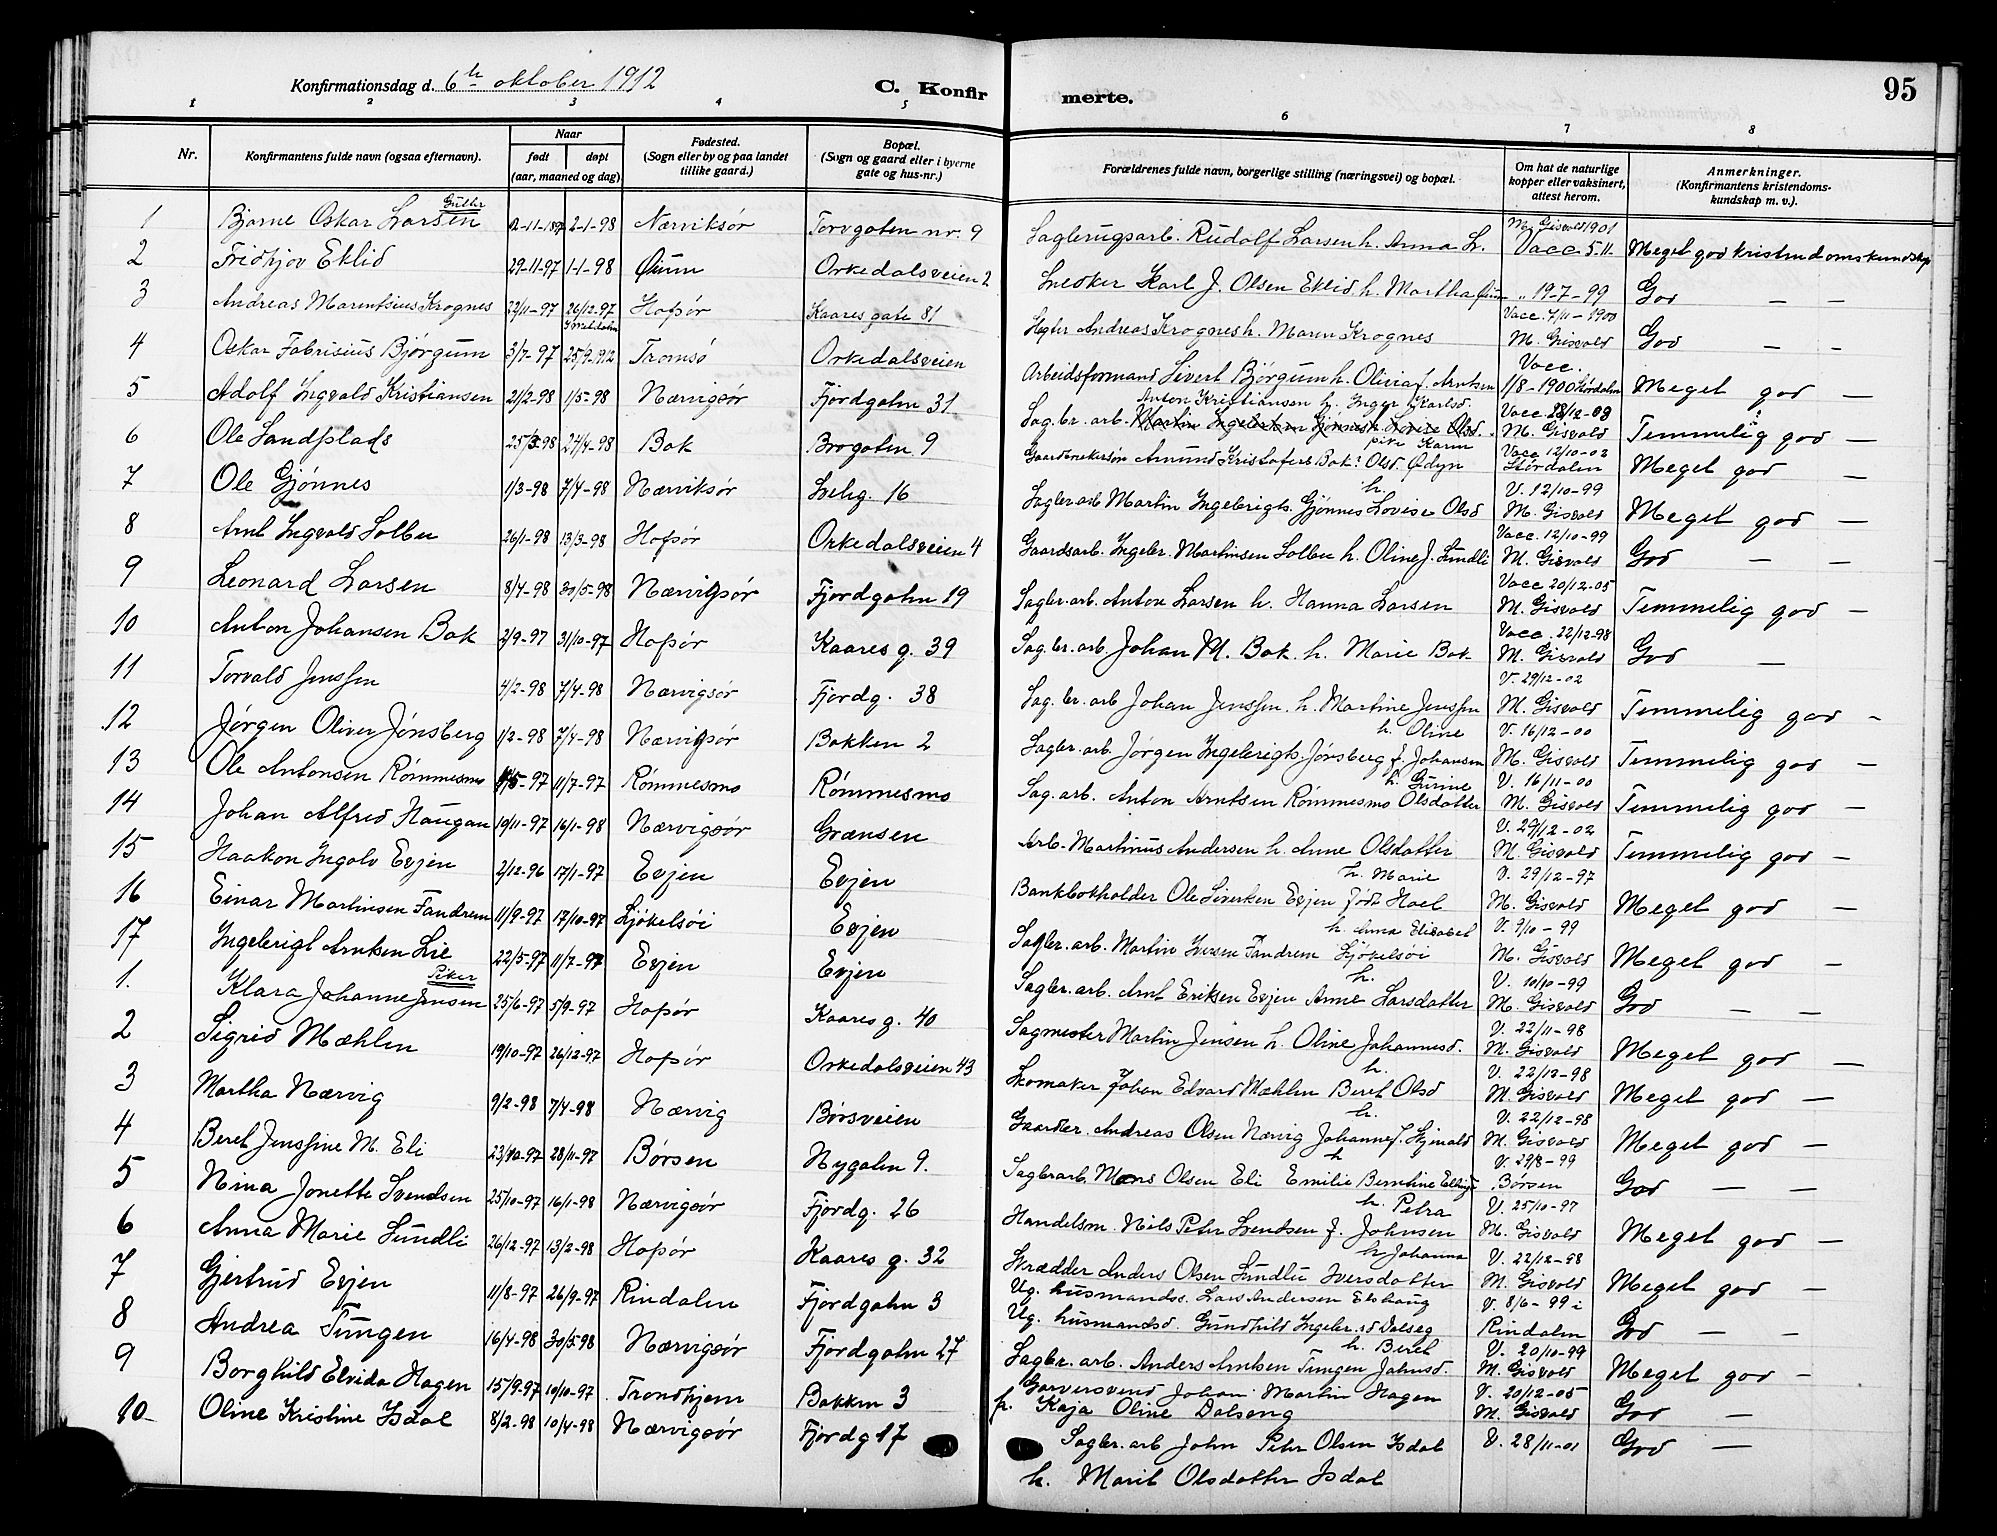 Konfirmationsdag d. 6te oktober 1912
C. Konfirmerte.
95
1 2 3 4 5 6 7 8
Nr.
Konfirmantens fulde navn (ogsaa efternavn).
Naar
født døpt
(aar, maaned og dag)
Fødested.
(Sogn eller by og paa landet
tillike gaard.)
Bopæl.
(Sogn og gaard eller i byerne
gate og hus-nr.)
Forældrenes fulde navn, borgerlige stilling (næringsvei) og bopæl.
Om hat de naturlige
kopper eller vaksinert,
attest herom.
Anmerkninger.
(Konfirmantens kristendoms-
kundskap m. v.).
Gutter
1 Bjarne Oskar Larsen 2-1-98 Nærviksør Torvgaten nr. 9 Sagbrugsarb. Rudolf Larsen h. Anna L. M. Gisvold 1901 Vacc. 5-11 Meget god kristendomskundskp
2 Fridtjov Eklid 29-11-97 1-1-98 Øium Orkedalsveien 2 Snedker Karl J. Olsen Eklid h. Martha Øium " 19-7-99 God — —
3 Andreas Marentsius Krognes 22/11-97 26/12-97 Hofsør Kaares gate 81 Andreas Krognes h. Maren Krognes Vacc. 7/11-1900 M. Gisvold God — —
4 Oskar Fabrisius Bjørgum 3/7-97 Tromsø Orkedalsveien Arbeidsformand Sivert Bjørgum h. Olivia f. Arntsen Vacc. 1/8-1900 Meget god —
5 Adolf Ingvald Kristiansen 21/2-98 1/5-98 Nærvigsør Fjordgatn 31 Sag.br. arb. Martin Ingebrigtsen Gjønnes h. Lovise Olsd. Anton Kristiansen h. Inger Karlsd. Vacc. 28/12-08 M. Gisvold Temmelig god —
6 Ole Sandplads 25/3-98 24/4-98 Bak Brogaten 9 Gaardbrukersøn Amund Kristofers Bak: pike Karen Olsd. Ødyn Vacc. 12/10-02 Størdalen Meget god —
7 Ole Gjønnes 1/3-98 7/4-98 Nærviksør 16 Sagbr.arb Martin Ingebrigts. Gjønnes h. Lovise Olsd V. 12/10-99 M. Gisvold Meget god —
8 Arnt Ingvald Solbu 26/1-98 13/3-98 Hofsør Orkedalsveien 4 Gaardsarb. Ingebr. Martinsen Solbu h. Oline J. Sundli Vacc. 12/10-99 M. Gisvold God — —
9 Leonard Larsen 8/4-98 30/5-98 Nærvigsør Fjordgatn 19 Sagbr.arb. Anton Larsen h. Hanna Larsen Vacc 20/12-05 M. Gisvold Temmelig god —
10 Anton Johansen Bak 2/9-97 31/10-97 Hofsør Kaares g. 39 Sag.br. arb. Johan M. Bak. h. Marie Bak Vacc. 22/12-98 M. Gisvold God —
11 Torvald Jenssen 4/2-98 7/4-98 Nærvigsør Fjordg. 38 Sag. br. arb Johan Jenssen. h. Martine Jenssen V. 29/12-02 M. Gisvold Temmelig god —
12 Jørgen Oliver Jønsberg 1/2-98 7/4-98 Nærvigsør Bakken 2 Sagbr. arb. Jørgen Ingebrigts. Jønsberg h. Oline f. Johansen V. 16/12-00 M. Gisvold Temmelig god —
13 Ole Antonsen Rømmesmo 11/7-97 Rømmesmo Rømmesmo Sag. arb. Anton Arntsen Rømmesmo h. Gurine Olsdatter V. 16/11-00 M. Gisvold Temmelig god —
14 Johan Alfred Haugan 19/11-97 16/1-98 Nærvigsør Grænsen Arb. Martinus Andersen h. Anne Olsdatter V. 29/12-02 M. Gisvold Temmelig god —
15 Haakon Ingolv Evjen 2/12-96 17/1-97 Evjen Evjen Bankbokholder Ole Siverken Evjen h. Marie født Hoel V. 29/12-97 M. Gisvold Meget god —
16 Einar Martinsen Fandrem 11/9-97 17/10-97 Ljøkelsøi Evjen Sagbr. arb. Martin Iversen Fandrem h. Anna Elisabet Ljøkelsøi V. 9/10-99 M. Gisvold Meget god —
17 Ingebrigt Arntsen Lie 22/5-97 11/7-97 Evjen Evjen Sagbr. arb. Arnt Eriksen Evjen h. Anne Larsdatter V. 10/10-99 M. Gisvold God — —
Piker
1. Klara Johanne Jensen 25/6-97 5/9-97 Hofsør Kaares g. 40 Sagmester Martin Jensen h. Oline Johannesd. V. 22/11-98 M. Gisvold Meget god —
2 Sigrid Mæhlen 19/10-97 26/12-97 Hofsør Orkedalsveien 43 Skomaker Johan Edvard Mæhlen h. Beret Olsd V. 22/12-98 M. Gisvold Meget god —
3 Martha Nærvig 9/2-98 7/4-98 Nærvig Børsveien Gaardbr. Andreas Olsen Nærvig h. Johanne f. V. 22/12-98 M. Gisvold Meget god —
4 Beret Jenssine M. Eli 23/10-97 28/11-97 Børsen Nygatn 9. Sagbr.arb. Mons Olsen Eli h Emilie Berntine V. 29/8-99 Børsen God — —
5 Nina Jonette Svendsen 25/10-97 16/1-98 Nærvigsør Fjordg. 26 Handelsm. Nils Peter Svendsen h. Petra f. Johnsen V. 25/10-97 M. Gisvold Meget god —
6 Anna Marie Sundli 26/12-97 13/2-98 Hofsør Kaares g. 32 Skrædder Anders Olsen Sundli h Johanna Iversdatter V. 22/12-98 M. Gisvold Meget god —
7 Gjertrud Evjen 11/8-97 26/9-97 Rindalen Fjordgatn 3 Ug. husmandss. Lars Andersen Elshaug Ug. husmandsd. Gundhild Ingebr.sd Dalseg V. 8/6-99 i Rindalen God — —
8 Andrea Tungen 16/4-98 30/5-98 Nærvigsør Fjordgatn 27 Sagbr. arb. Anders Arntsen Tungen h. Beret Johnsd. V. 20/10-99 M. Gisvold Meget god —
9 Borghild Elvida Hagen 15/9-97 10/10-97 Trondhjem Bakken 3 Garversvend Johan Martin Hagen h. Kaja Oline Dalseng V. 20/12-05 M. Gisvold God —
10 Oline Kristine Isdal 8/2-98 10/4-98 Nærvigsør Fjordg 17 Sagbr. arb John Petr Olsen Isdal V. 28/11-01 God —
h. Marit Olsdatter Isdal